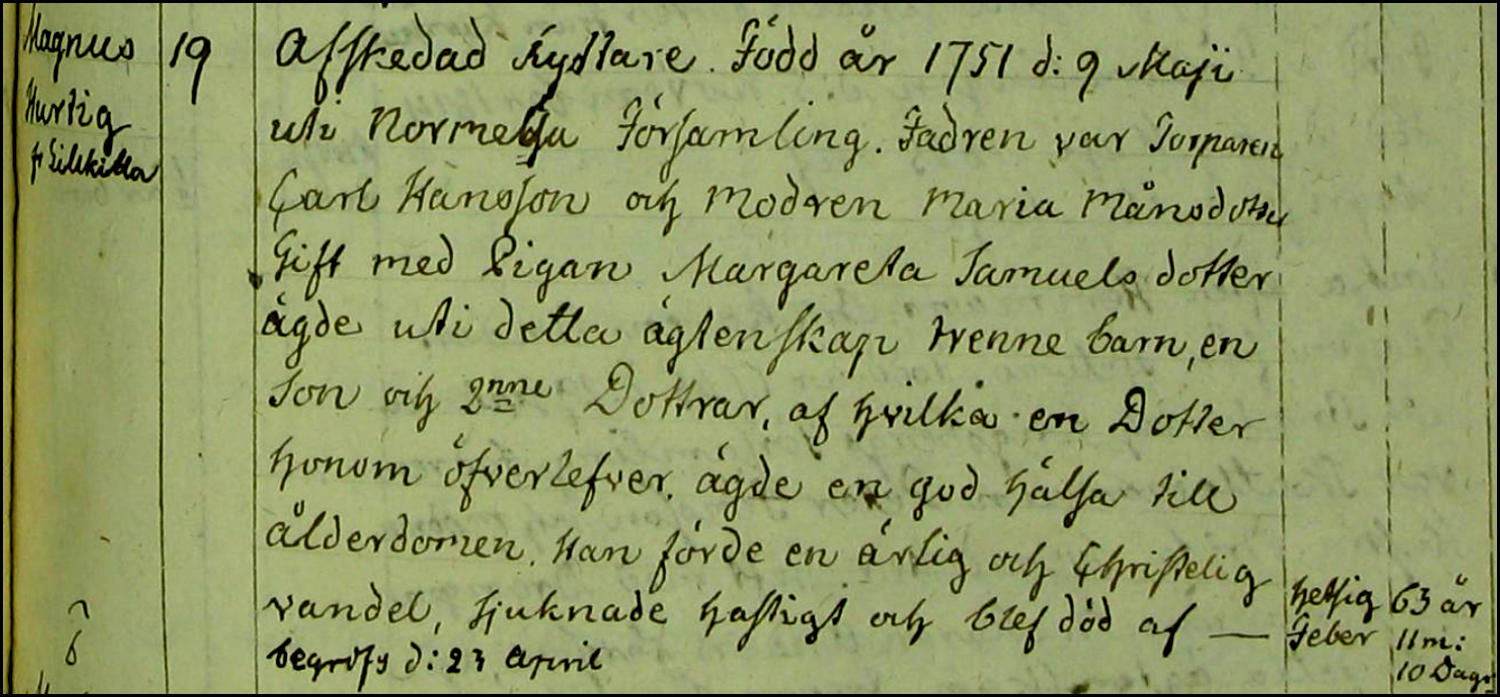 Magnus
Hurtig
fr Lilkilla
19
Afskedad Ryttare. Född år 1751 d: 9 Maji
uti Normelösa Församling. Fadren var Torparen
Carl Hansson och Modren Maria Månsdotter
Gift med Pigan Margareta Samuels dotter
ägde uti detta ägtenskap trenne barn, en
son och 2nne Dottrar, af hvilka en Dotter
honom öfverlefver. ägde en god hälsa till
ålderdomen. Han förde en ärlig och Christelig
vandel, sjuknade hastigt och blef död af —
begrofs d: 23 April
hetsig
Feber
63 år
11 m:
10 Dagr